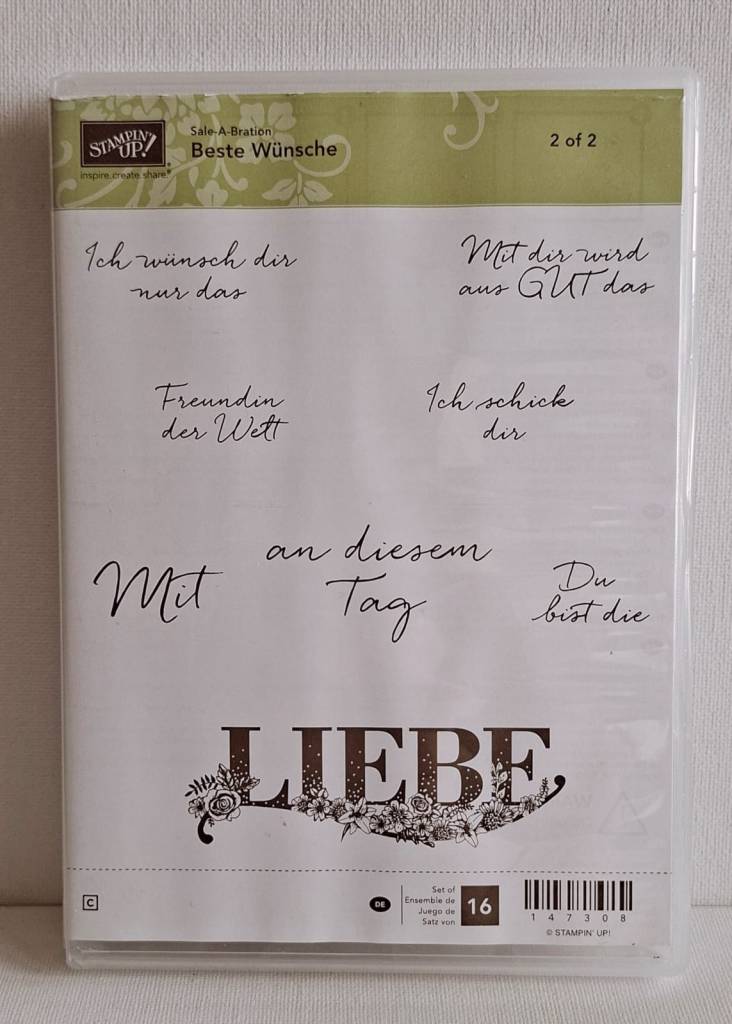 STAMPIN' UP!
inspire.create.share.®
Sale-A-Bration
Beste Wünsche
2 of 2
Ich wünsch dir
nur das
Mit dir wird
aus GUT das
Freundin
der Welt
Ich schick
dir
Mit
an diesem
Tag
Du
bist die
LIEBE
C
DE
Set of
Ensemble de
Juego de
Satz von
16
147308
© STAMPIN' UP!